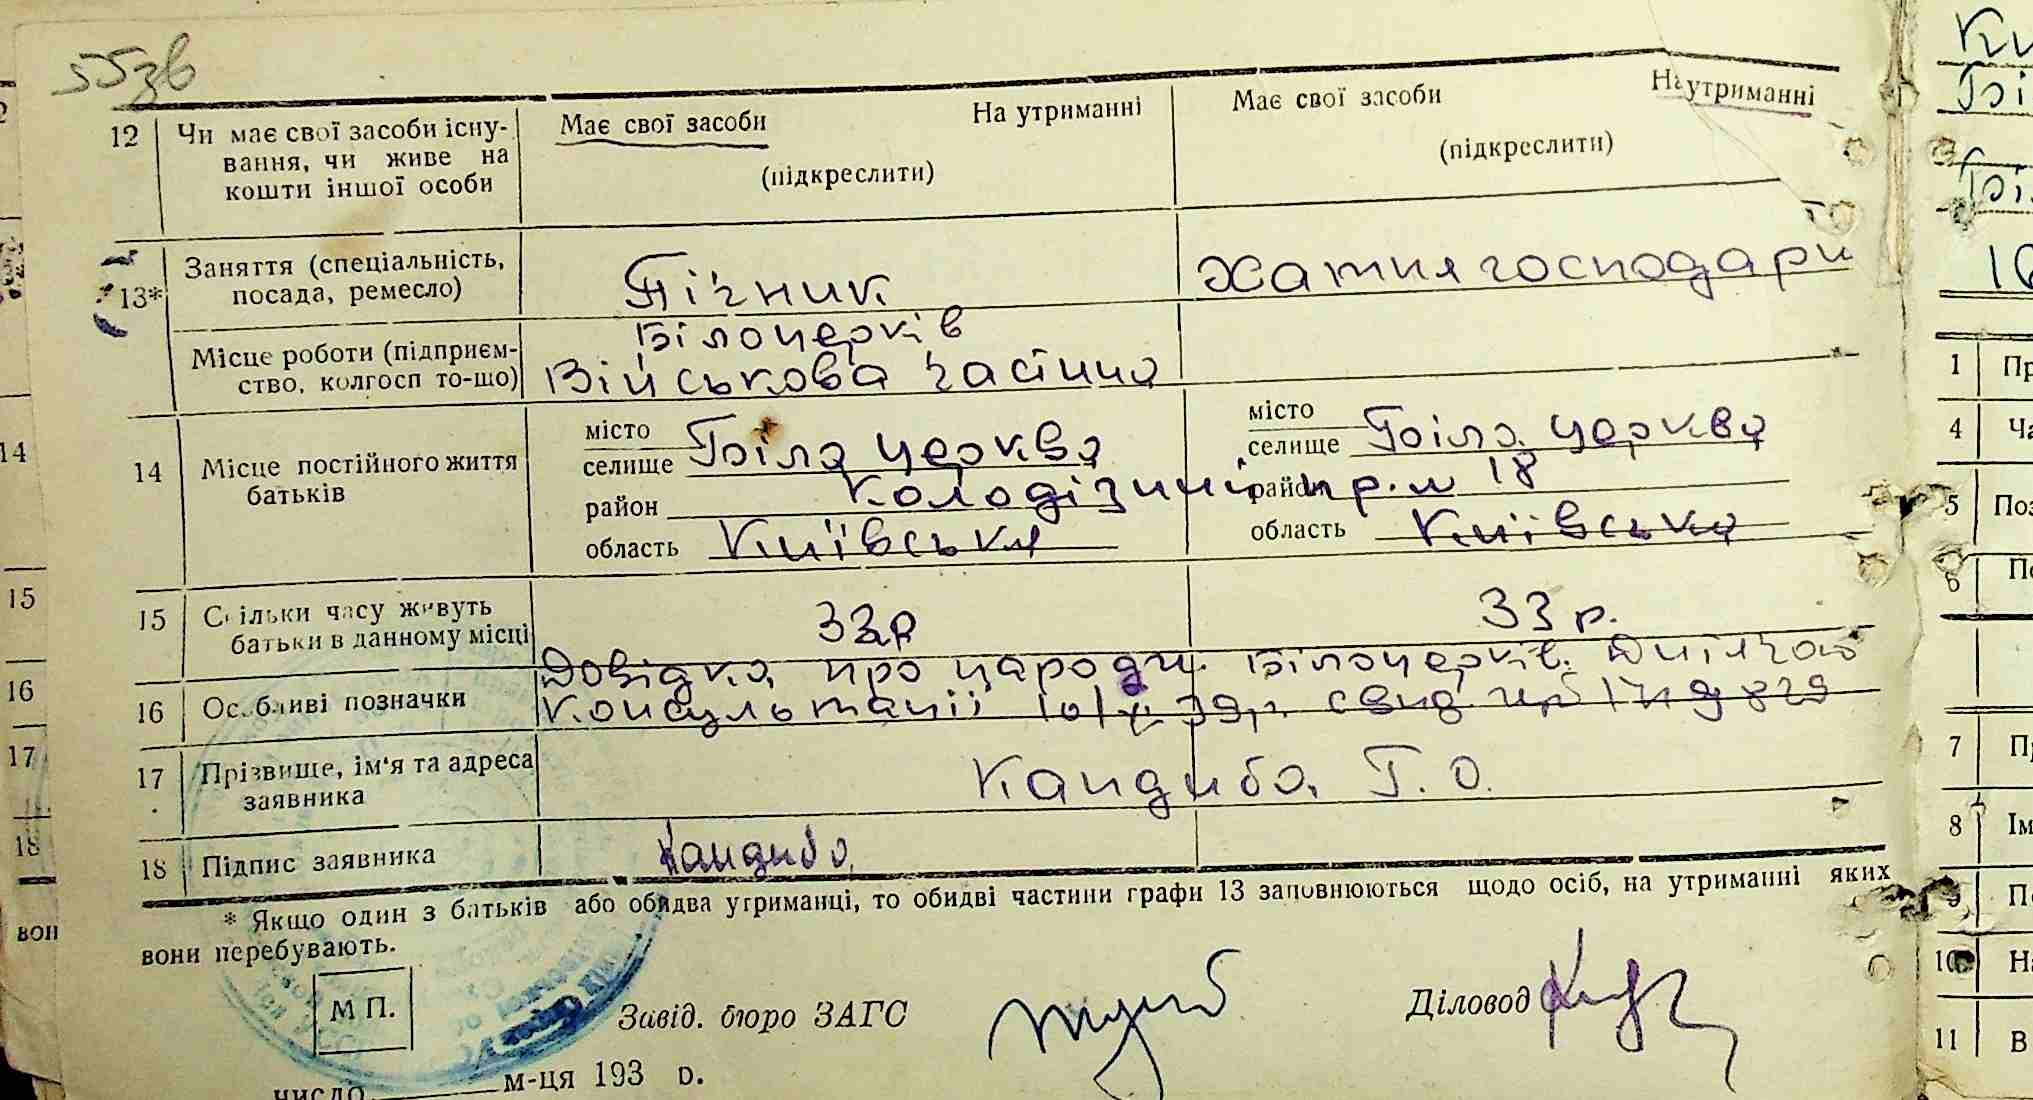 55зв
12 Чи має свої засоби існу- Має свої засоби На утриманні Має свої засоби На утриманні
вання, чи живе на (підкреслити) (підкреслити)
кошти іншої особи
13* Заняття (спеціальність, Пічник Хатня господари
посада, ремесло)
Місце роботи (підприєм- Білоцерків
ство, колгосп то-що) Військова частина
14 Місце постійного життя місто місто
батьків селище Біла Церква селище Біла Церква
район Колодізний район пр. № 18
область Київська область Київська
15 Скільки часу живуть 33р 33 р.
батьки в данному місці
16 Особливі позначки Довідка про народж. Білоцерків.
Консультації 10/ 39р.
17 Прізвище, ім'я та адреса Кандиба Г. О.
заявника
18 Підпис заявника Кандиба
* Якщо один з батьків або обидва утриманці, то обидві частини графи 13 заповнюються щодо осіб, на утриманні яких
вони перебувають.
М П. Завід. бюро ЗАГС Діловод
число м-ця 193 р.
14
15
16
17
18
вон
1 Пр
4 Ча
5 Поз
6 По
7 Пр
8 Ім
9 По
10 На
11 В